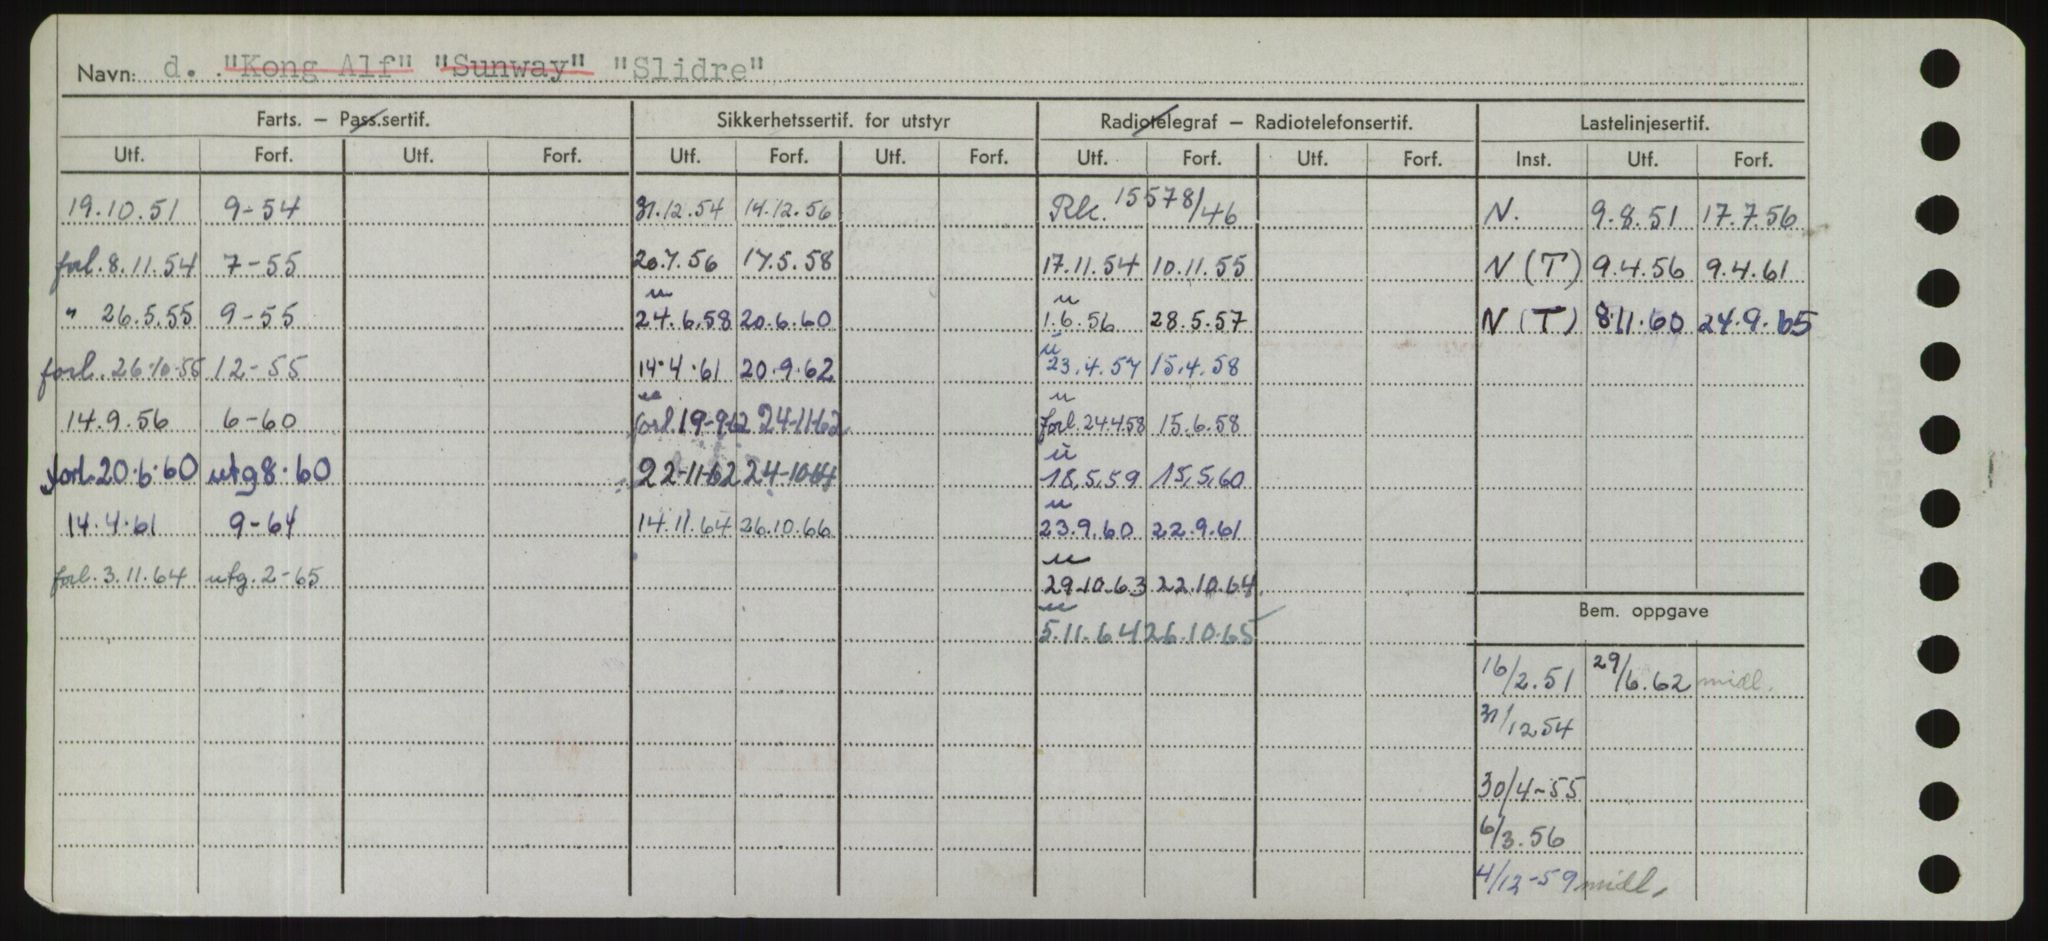 Navn: d. "Kong Alf" "Sunway" "Slidre"
Farts. – Pass.sertif. Sikkerhetssertif. for utstyr Radiotelegraf – Radiotelefonsertif. Lastelinjesertif.
Utf. Forf. Utf. Forf. Utf. Forf. Utf. Forf. Utf. Forf. Utf. Forf. Inst. Utf. Forf.
19.10.51 9-54 31.12.54 14.12.56 Rk. 15578/46 N. 9.8.51 17.7.56
forl. 8.11.54 7-55 20.7.56 17.5.58 17.11.54 10.11.55 N (T) 9.4.56 9.4.61
" 26.5.55 9-55 u 24.6.58 20.6.60 u 1.6.56 28.5.57 N (T) 8.11.60 24.9.65
forl. 26.10.55 12-55 14.4.61 20.9.62 u 23.4.57 15.4.58
14.9.56 6-60 forl. 19-9-62 24-11-62 u forl. 24.4.58 15.6.58
forl. 20.6.60 utg 8.60 22-11-62 24-10-64 u 18.5.59 15.5.60
14.4.61 9-64 14.11.64 26.10.66 u 23.9.60 22.9.61
forl. 3.11.64 utg. 2-65 u 29.10.63 22.10.64
u 5.11.64 26.10.65
Bem. oppgave
16/2.51 29/6.62 midl.
31/12 54
30/4-55
6/3.56
4/12-59 midl.